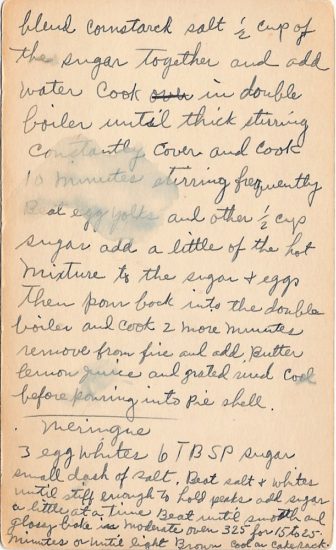 blend cornstarck salt ½ cup of
the sugar together and add
water cook over in double
boiler until thick stirring
constantly cover and cook
10 minutes stirring frequently
Beat egg yolks and other ½ cup
sugar add a little of the hot
mixture to the sugar & eggs
then pour back into the double
boiler and cook 2 more minutes
remove from fire and add Butter
lemon juice and grated rind Cool
before pouring into Pie shell.
Meringue
3 egg whites 6 TBSP sugar
small dash of salt. Beat salt & whites
until stiff enough to hold peaks add sugar
a little at a time Beat until smooth and
glossy bake in moderate oven 325 for 15 to 25
minutes or until light Brown Cool on cakerack